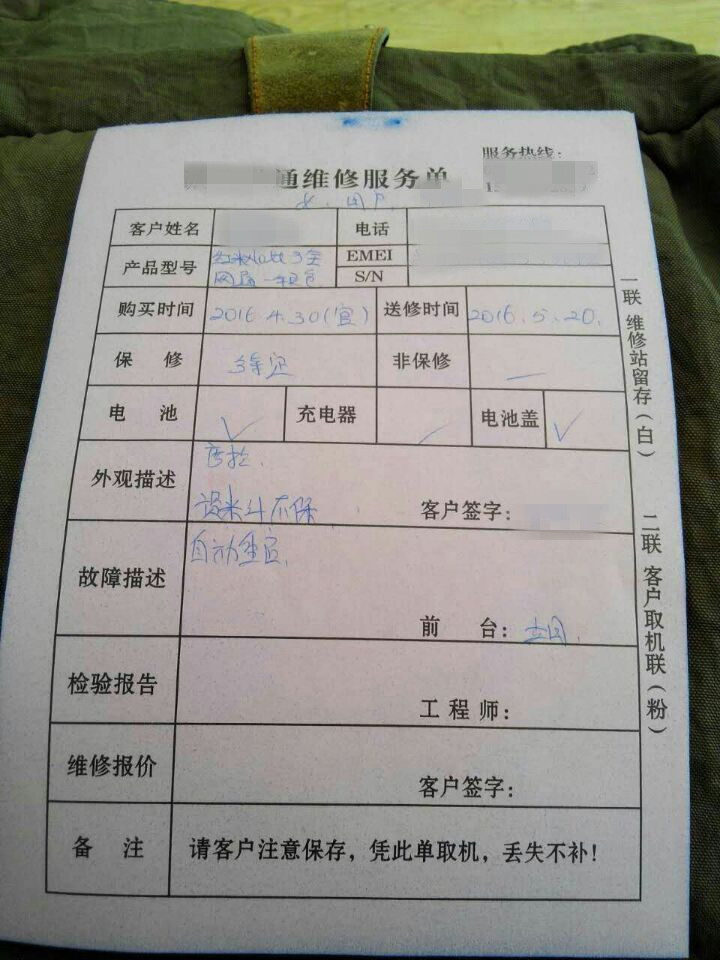 服务热线：
通维修服务单
女．用户
客户姓名 电话
产品型号 红米 3全 EMEI
网 S/N
购买时间 2016.4.30(宣) 送修时间 2016.5.20.
保 修 待定 非保修 —
电 池 ✓ 充电器 电池盖 ✓
外观描述
不保 客户签字：
故障描述 自动重启.
前 台：
检验报告
工程师：
维修报价
客户签字：
备 注 请客户注意保存，凭此单取机，丢失不补！
一联 维修站留存（白）
二联 客户取机联（粉）